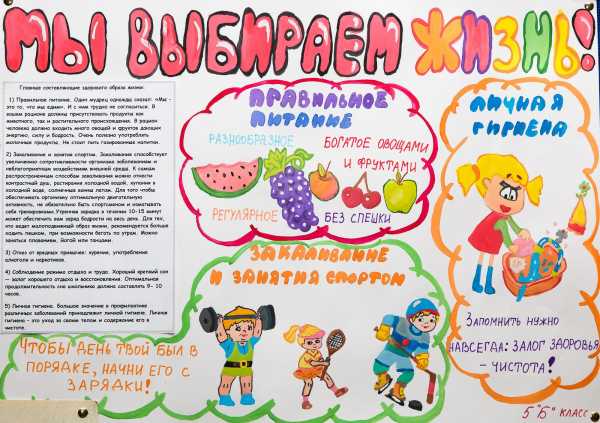 МЫ ВЫБИРАЕМ ЖИЗНЬ!
Главные составляющие здорового образа жизни:
1) Правильное питание. Один мудрец однажды сказал: «Мы -
это то, что мы едим». И с ним трудно не согласиться. В
нашем рационе должны присутствовать продукты как
животного, так и растительного происхождения. В рацион
человека должно входить много овощей и фруктов дающих
энергию, силу и бодрость. Очень полезно употреблять
молочные продукты. Не стоит пить газированные напитки.
2) Закаливание и занятия спортом. Закаливания способствует
увеличению сопротивляемости организма заболеваниям и
неблагоприятным воздействиям внешней среды. К самым
распространенным способам закаливания можно отнести
контрастный душ, растирания холодной водой, купание в
холодной воде, солнечные ванны летом. Для того чтобы
обеспечивать организму оптимальную двигательную
активность, не обязательно быть спортсменом и изматывать
себя тренировками. Утренняя зарядка в течении 10-15 минут
может обеспечить вам заряд бодрости на весь день. Для тех,
кто ведет малоподвижный образ жизни, рекомендуется больше
ходить пешком, при возможности бегать по утрам. Можно
заняться плаванием, йогой или танцами.
3) Отказ от вредных привычек: курения, употребления
алкоголя и наркотиков.
4) Соблюдение режима отдыха и труда. Хороший крепкий сон
– залог хорошего отдыха и восстановления. Оптимальная
продолжительность сна школьника должна составлять 9- 10
часов.
5) Личная гигиена. Большое значение в профилактике
различных заболеваний принадлежит личной гигиене. Личная
гигиена – это уход за своим телом и содержание его в
чистоте.
ПРАВИЛЬНОЕ
ПИТАНИЕ
РАЗНООБРАЗНОЕ
БОГАТОЕ ОВОЩАМИ
И ФРУКТАМИ
РЕГУЛЯРНОЕ
БЕЗ СПЕШКИ
ЛИЧНАЯ
ГИГИЕНА
ЗАПОМНИТЬ НУЖНО
НАВСЕГДА: ЗАЛОГ ЗДОРОВЬЯ
- ЧИСТОТА!
ЗАКАЛИВАНИЕ
И ЗАНЯТИЯ СПОРТОМ
ЧТОБЫ ДЕНЬ ТВОЙ БЫЛ В
ПОРЯДКЕ, НАЧНИ ЕГО С
ЗАРЯДКИ!
5 "Б" КЛАСС